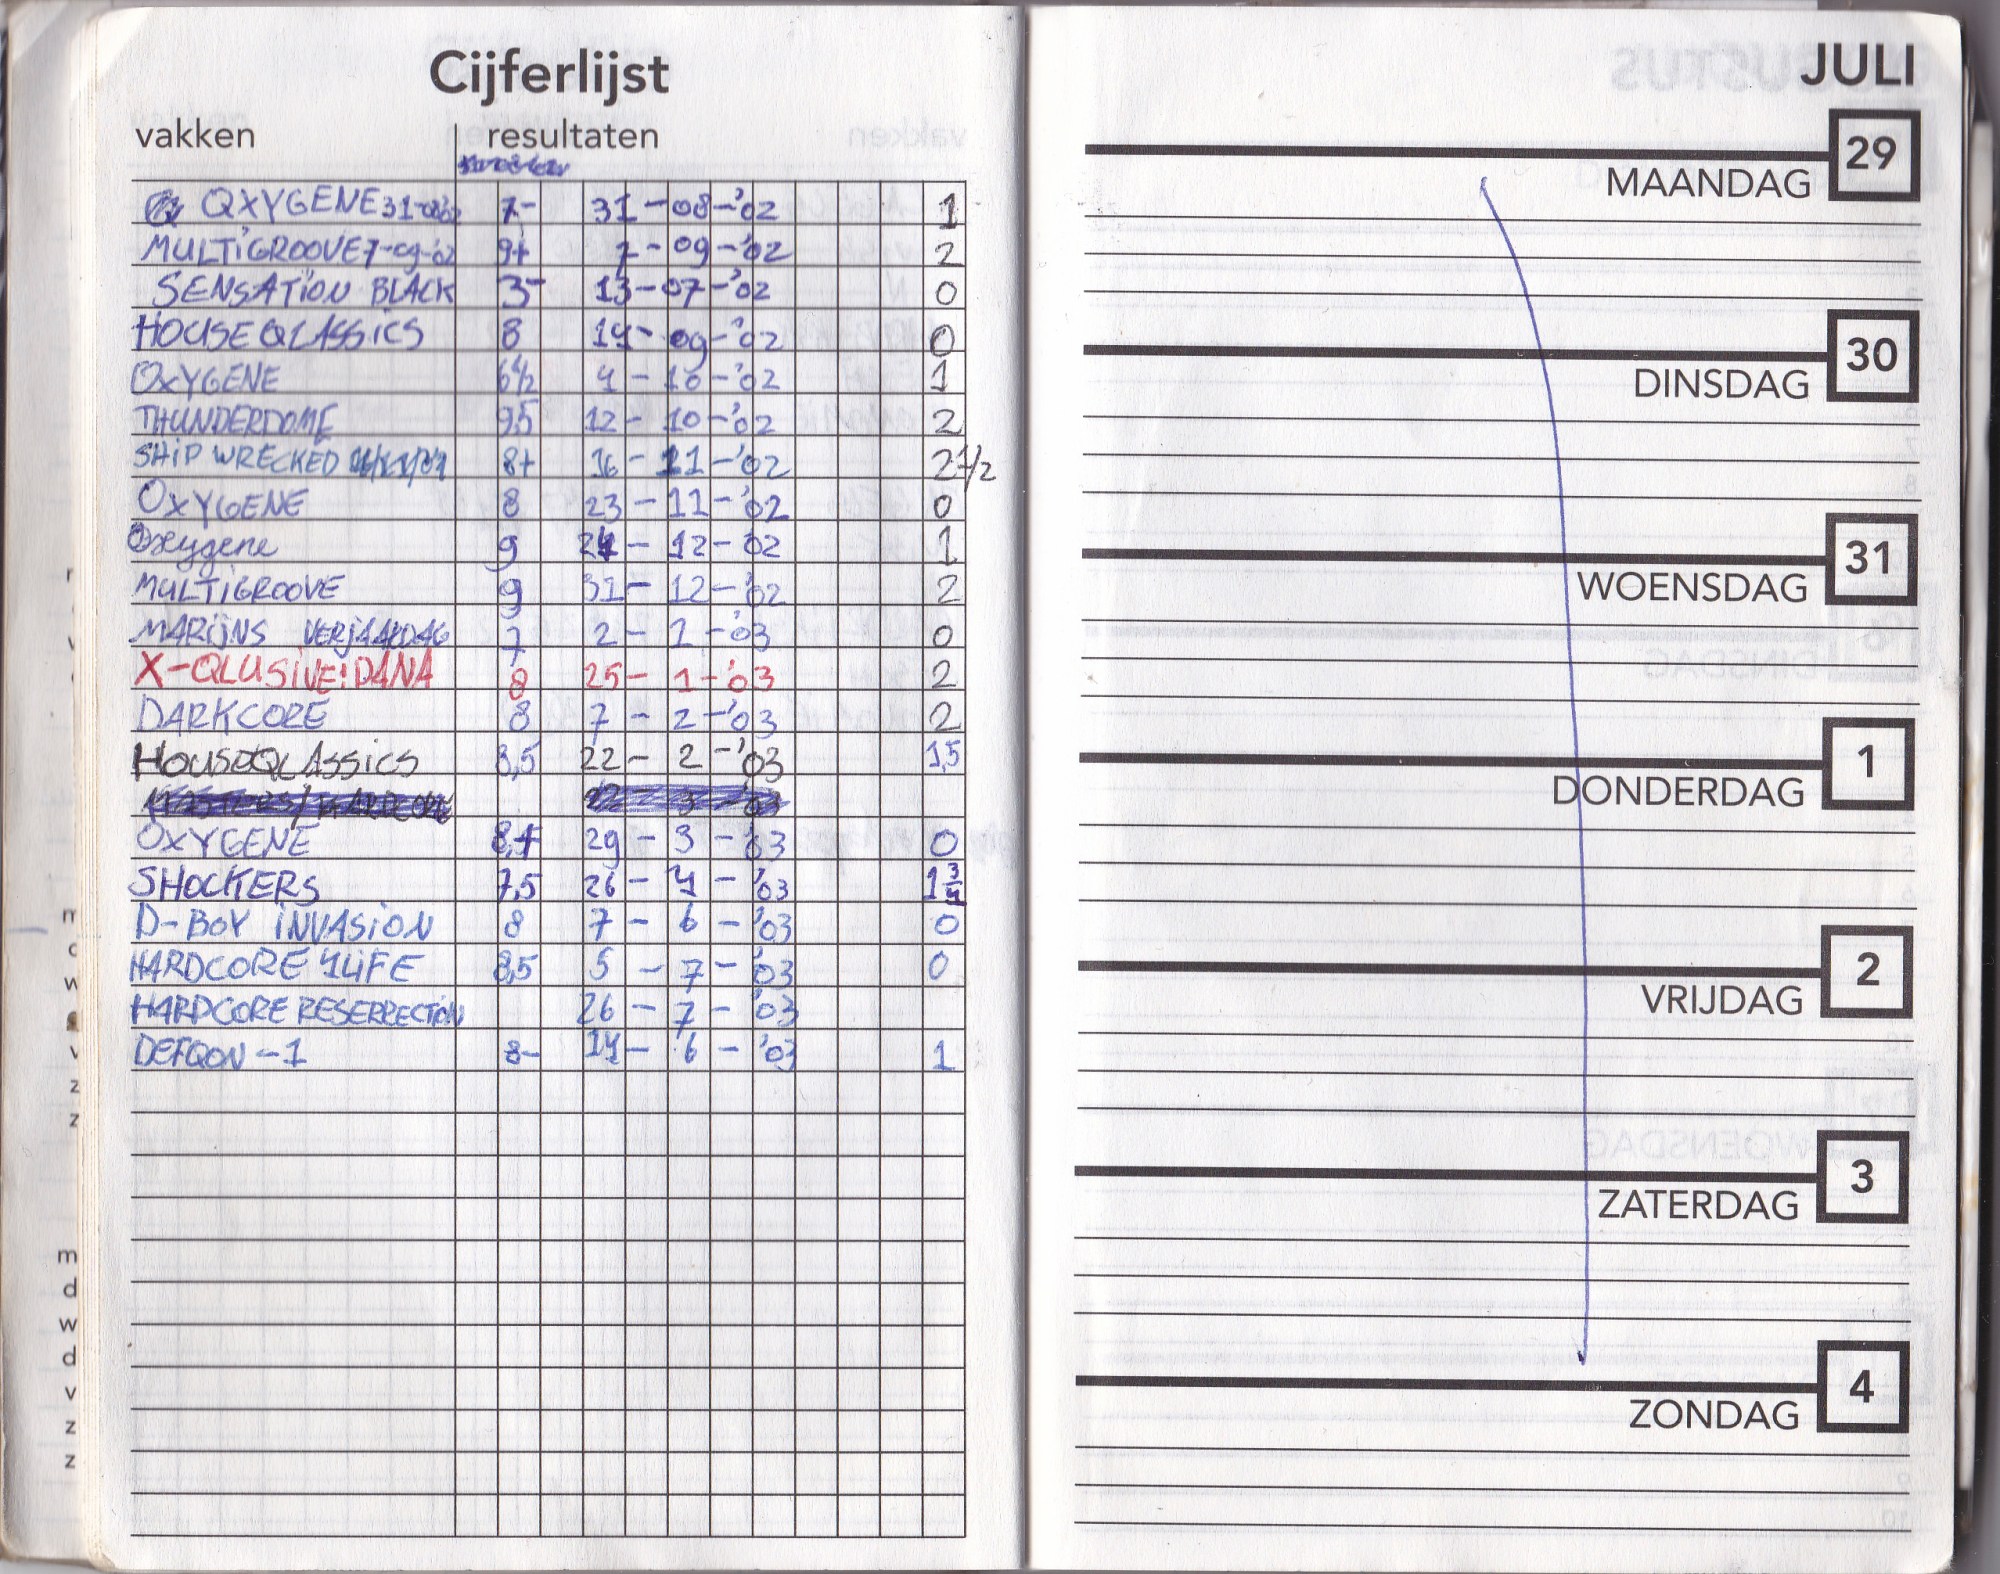 Cijferlijst
vakken resultaten
QXYGENE 31-08-'02 7- 31-08-'02 1
MULTIGROOVE 7-09-'02 9+ 7-09-'02 2
SENSATION BLACK 3- 13-07-'02 0
HOUSEQLASSICS 8 14-09-'02 0
OXYGENE 6½ 4-10-'02 1
THUNDERDOME 9,5 12-10-'02 2
SHIP WRECKED 8+ 16-11-'02 2 1/2
OXYGENE 8 23-11-'02 0
Oxygene 9 24-12-'02 1
MULTIGROOVE 9 31-12-'02 2
MARIJNS VERJAARDAG 7 2-1-'03 0
X-QLUSIVE: DANA 8 25-1-'03 2
DARKCORE 8 7-2-'03 2
HOUSEQLASSICS 8,5 22-2-'03 1,5
OXYGENE 29-3-'03 0
SHOCKERS 7,5 26-4-'03 1 3/4
D-BOY INVASION 8 7-6-'03 0
HARDCORE 4LIFE 8,5 5-7-'03 0
HARDCORE RESERRECTION 26-7-'03
DEFQON-1 8- 14-6-'03 1
m
d
w
d
v
z
z
JULI
29
MAANDAG
30
DINSDAG
31
WOENSDAG
1
DONDERDAG
2
VRIJDAG
3
ZATERDAG
4
ZONDAG